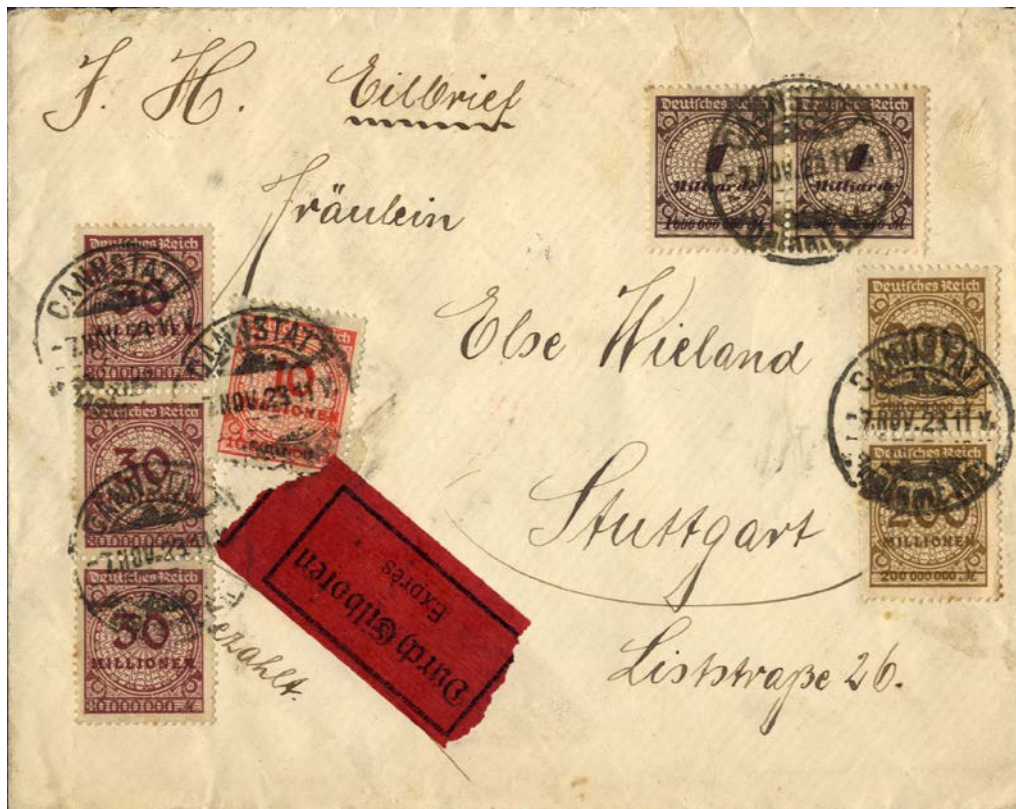 J. H. Eilbrief
Fräulein
Else Wieland
Stuttgart
Liststraße 26.
Deutsches Reich
1
Milliarde
1 000 000 000 M
Deutsches Reich
1
Milliarde
CANNSTATT
-7.NOV.23.11V.
Deutsches Reich
CANNSTATT
-7.NOV.23.11V.
Deutsches Reich
200
MILLIONEN
200 000 000 M
Deutsches Reich
30
MILLIONEN
30 000 000 M
CANNSTATT
-7.NOV.23.11V.
Deutsches Reich
30
MILLIONEN
30 000 000 M
CANNSTATT
-7.NOV.23.
Deutsches Reich
30
MILLIONEN
30 000 000 M
10
MILLIONEN
CANNSTATT
7.NOV.23.11V.
Durch Eilboten
Exprès
bezahlt.